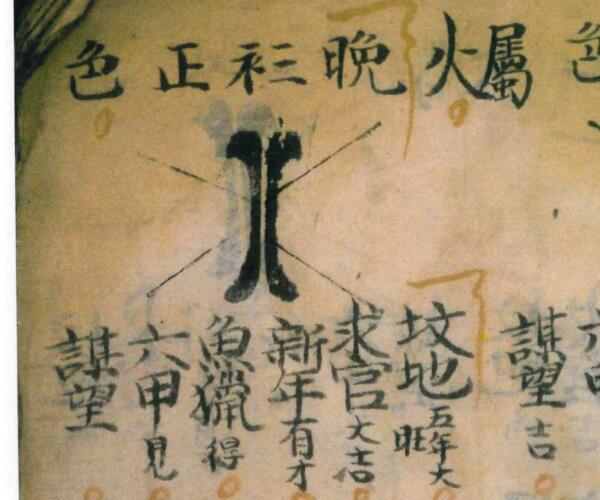 屬火晚衫正色
謀望吉
坟地五年大旺
求官大吉
新年有才
魚獵得
六甲見
謀望